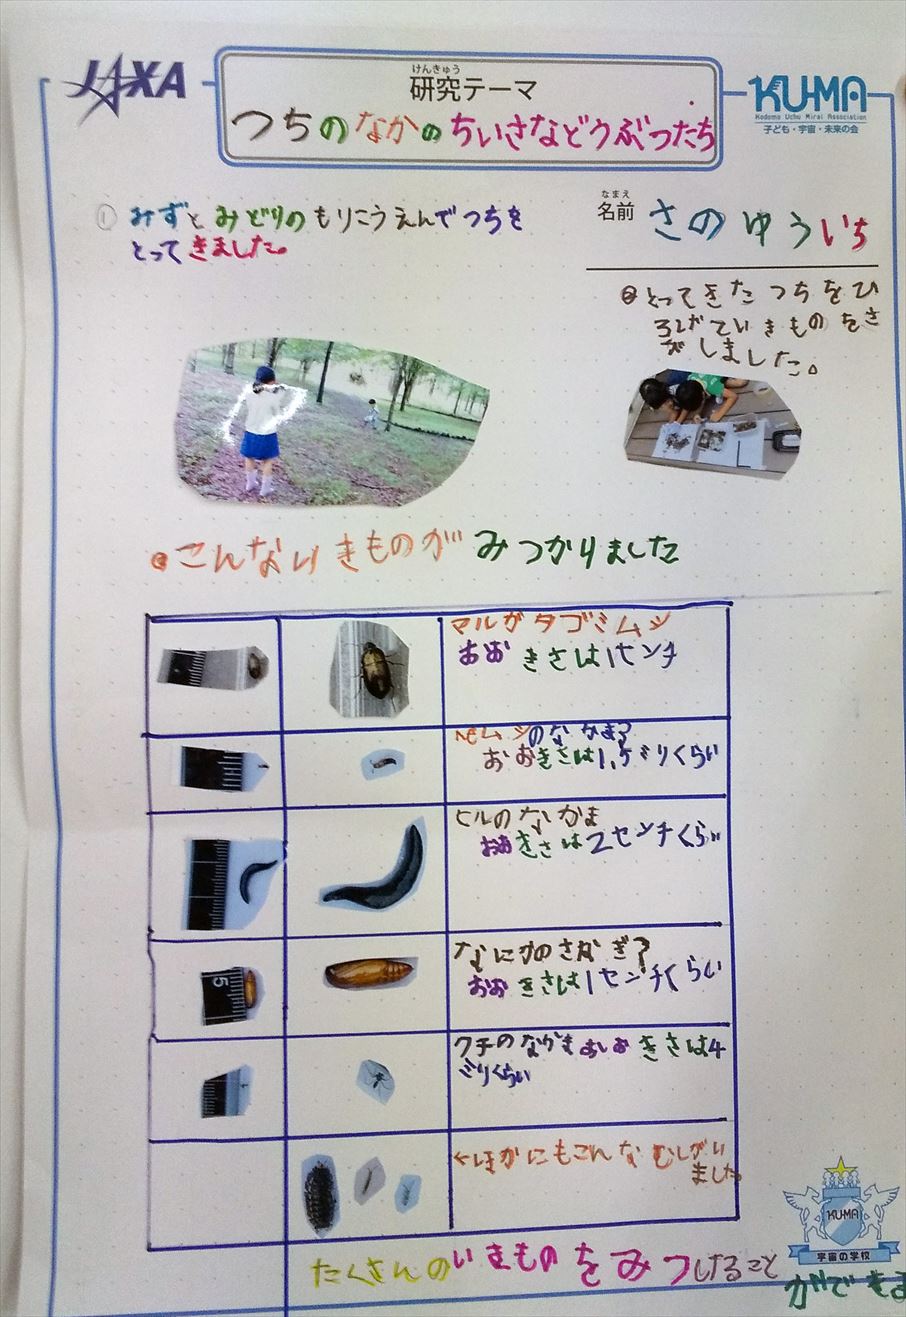 JAXA
けんきゅう
研究テーマ
つちのなかのちいさなどうぶつたち
KU-MA
Kodomo Uchu Mirai Association
子ども・宇宙・未来の会
① みずとみどりのもりこうえんでつちを
とってきました。
なまえ
名前 さのゆういち
②とってきたつちをひ
ろげていきものをさ
がしました。
③こんないきものがみつかりました
マルガタゴミムシ
おおきさは1センチ
のなかま?
おおきさは1.5ミリくらい
ヒルのなかま
おおきさは2センチくらい
なにかのさなぎ?
おおきさは1センチくらい
5
のなかま おおきさは4
ミリくらい
←ほかにもこんなむしがい
ました
KU-MA
宇宙の学校
たくさんのいきものをみつけること
ができま